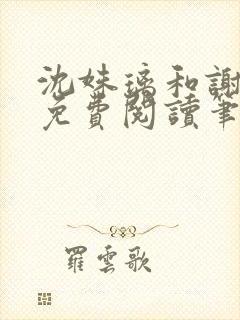 沈妹璃和謝
免費閱讀筆
羅雲歌